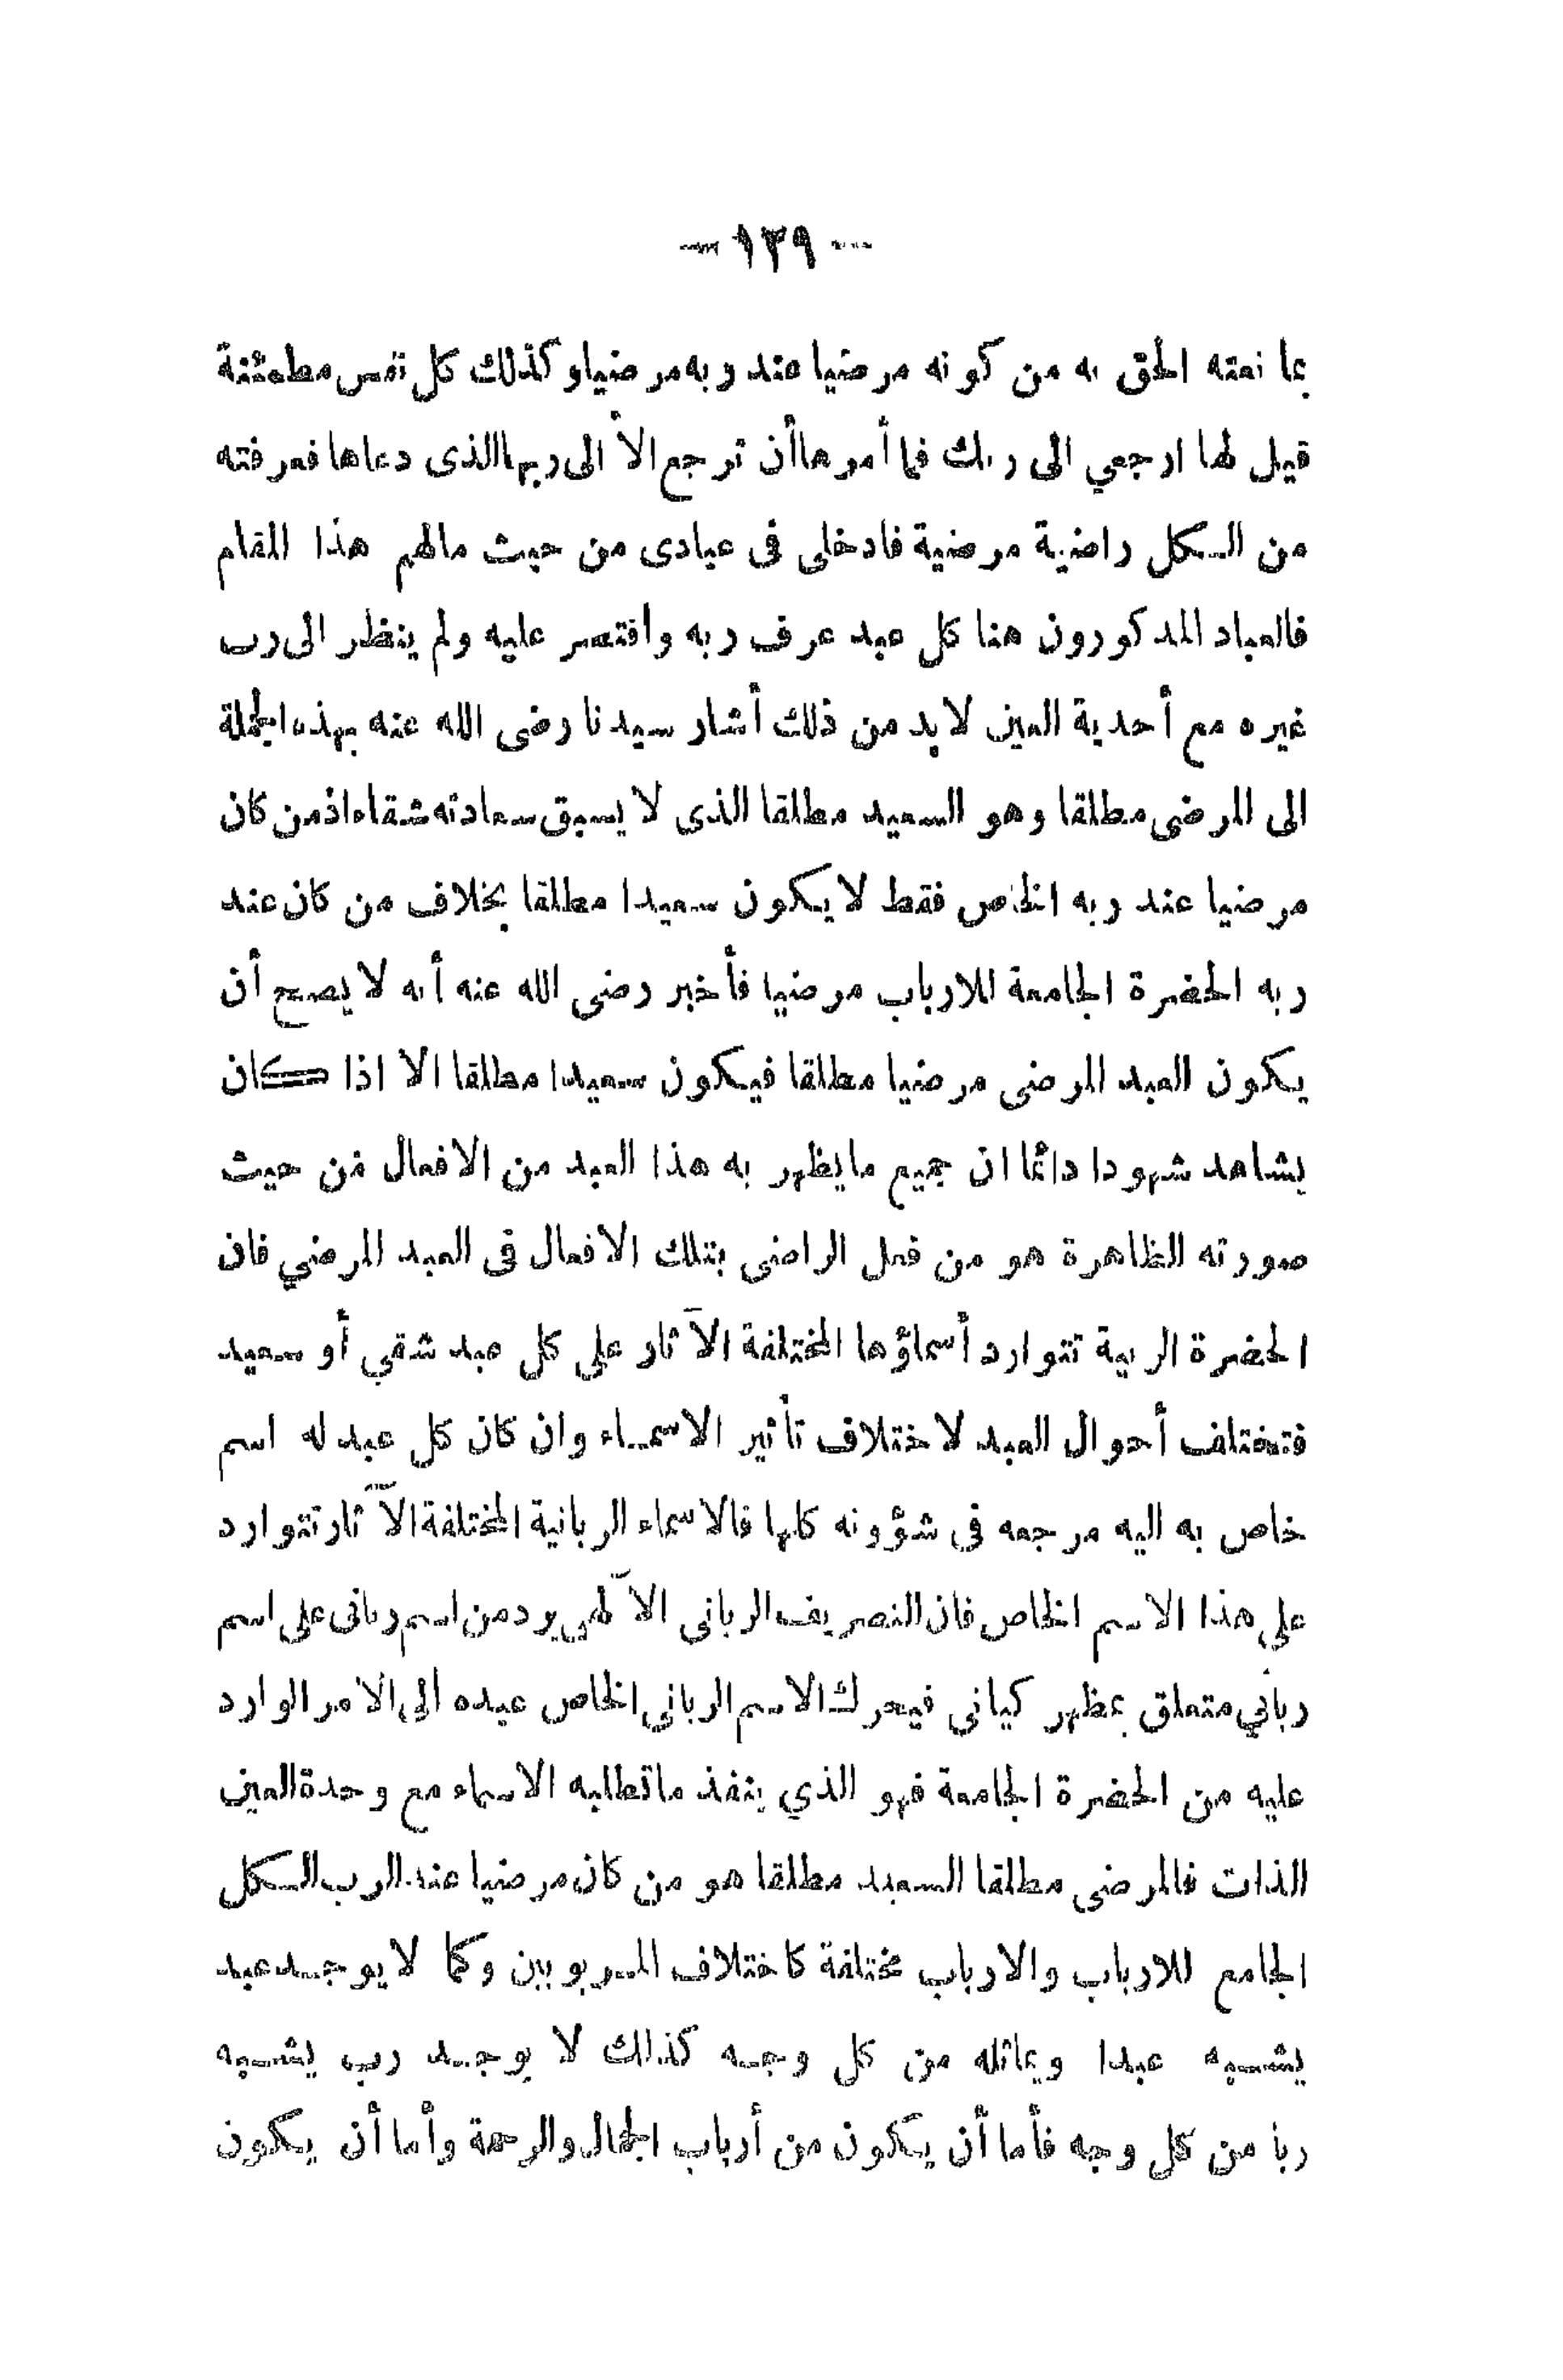 — ١٣٩ —
بما نعته الحق به من كونه مرضيا عند ربه مرضيا وكذلك كل نفس مطمئنة
قيل لها ارجعي الى ربك فما أمرها أن ترجع الا الى ربها الذى دعاها فعرفته
من الكل راضية مرضية فادخلى فى عبادى من حيث مالهم هذا المقام
فالعباد المذكورون هنا كل عبد عرف ربه واقتصر عليه ولم ينظر الى رب
غيره مع أحدية العين لا بد من ذلك أشار سيدنا رضى الله عنه بهذه الجملة
الى المرضى مطلقا وهو السعيد مطلقا الذى لا يسبق سعادته شقاء اذ من كان
مرضيا عند ربه الخاص فقط لا يكون سعيدا مطلقا بخلاف من كان عند
ربه الحضرة الجامعة للارباب مرضيا فأخبر رضى الله عنه أنه لا يصح أن
يكون العبد المرضى مرضيا مطلقا فيكون سعيدا مطلقا الا اذا كان
يشاهد شهودا دائما ان جميع ما يظهر به هذا العبد من الافعال فمن حيث
صورته الظاهرة هو من فعل الراضى بتلك الافعال فى العبد المرضي فان
الحضرة الربية تتوارد أسماؤها المختلفة الآثار على كل عبد شقي أو سعيد
فتختلف أحوال العبد لاختلاف تأثير الاسماء وان كان كل عبد له اسم
خاص به اليه مرجعه فى شؤونه كلها فالاسماء الربانية المختلفة الآثار تتوارد
على هذا الاسم الخاص فان التصريف الربانى الآلهى يرد من اسم ربانى على اسم
رباني متعلق بمظهر كيانى فيحرك الاسم الربانى الخاص عبده الى الامر الوارد
عليه من الحضرة الجامعة فهو الذي ينفذ ما تطلبه الاسماء مع وحدة العين
الذات فالمرضى مطلقا السعيد مطلقا هو من كان مرضيا عند الرب الكل
الجامع للارباب والارباب مختلفة كاختلاف المربوبين وكما لا يوجد عبد
يشبه عبدا ويماثله من كل وجه كذلك لا يوجد رب يشبه
ربا من كل وجه فأما أن يكون من أرباب الجمال والرحمة وأما أن يكون